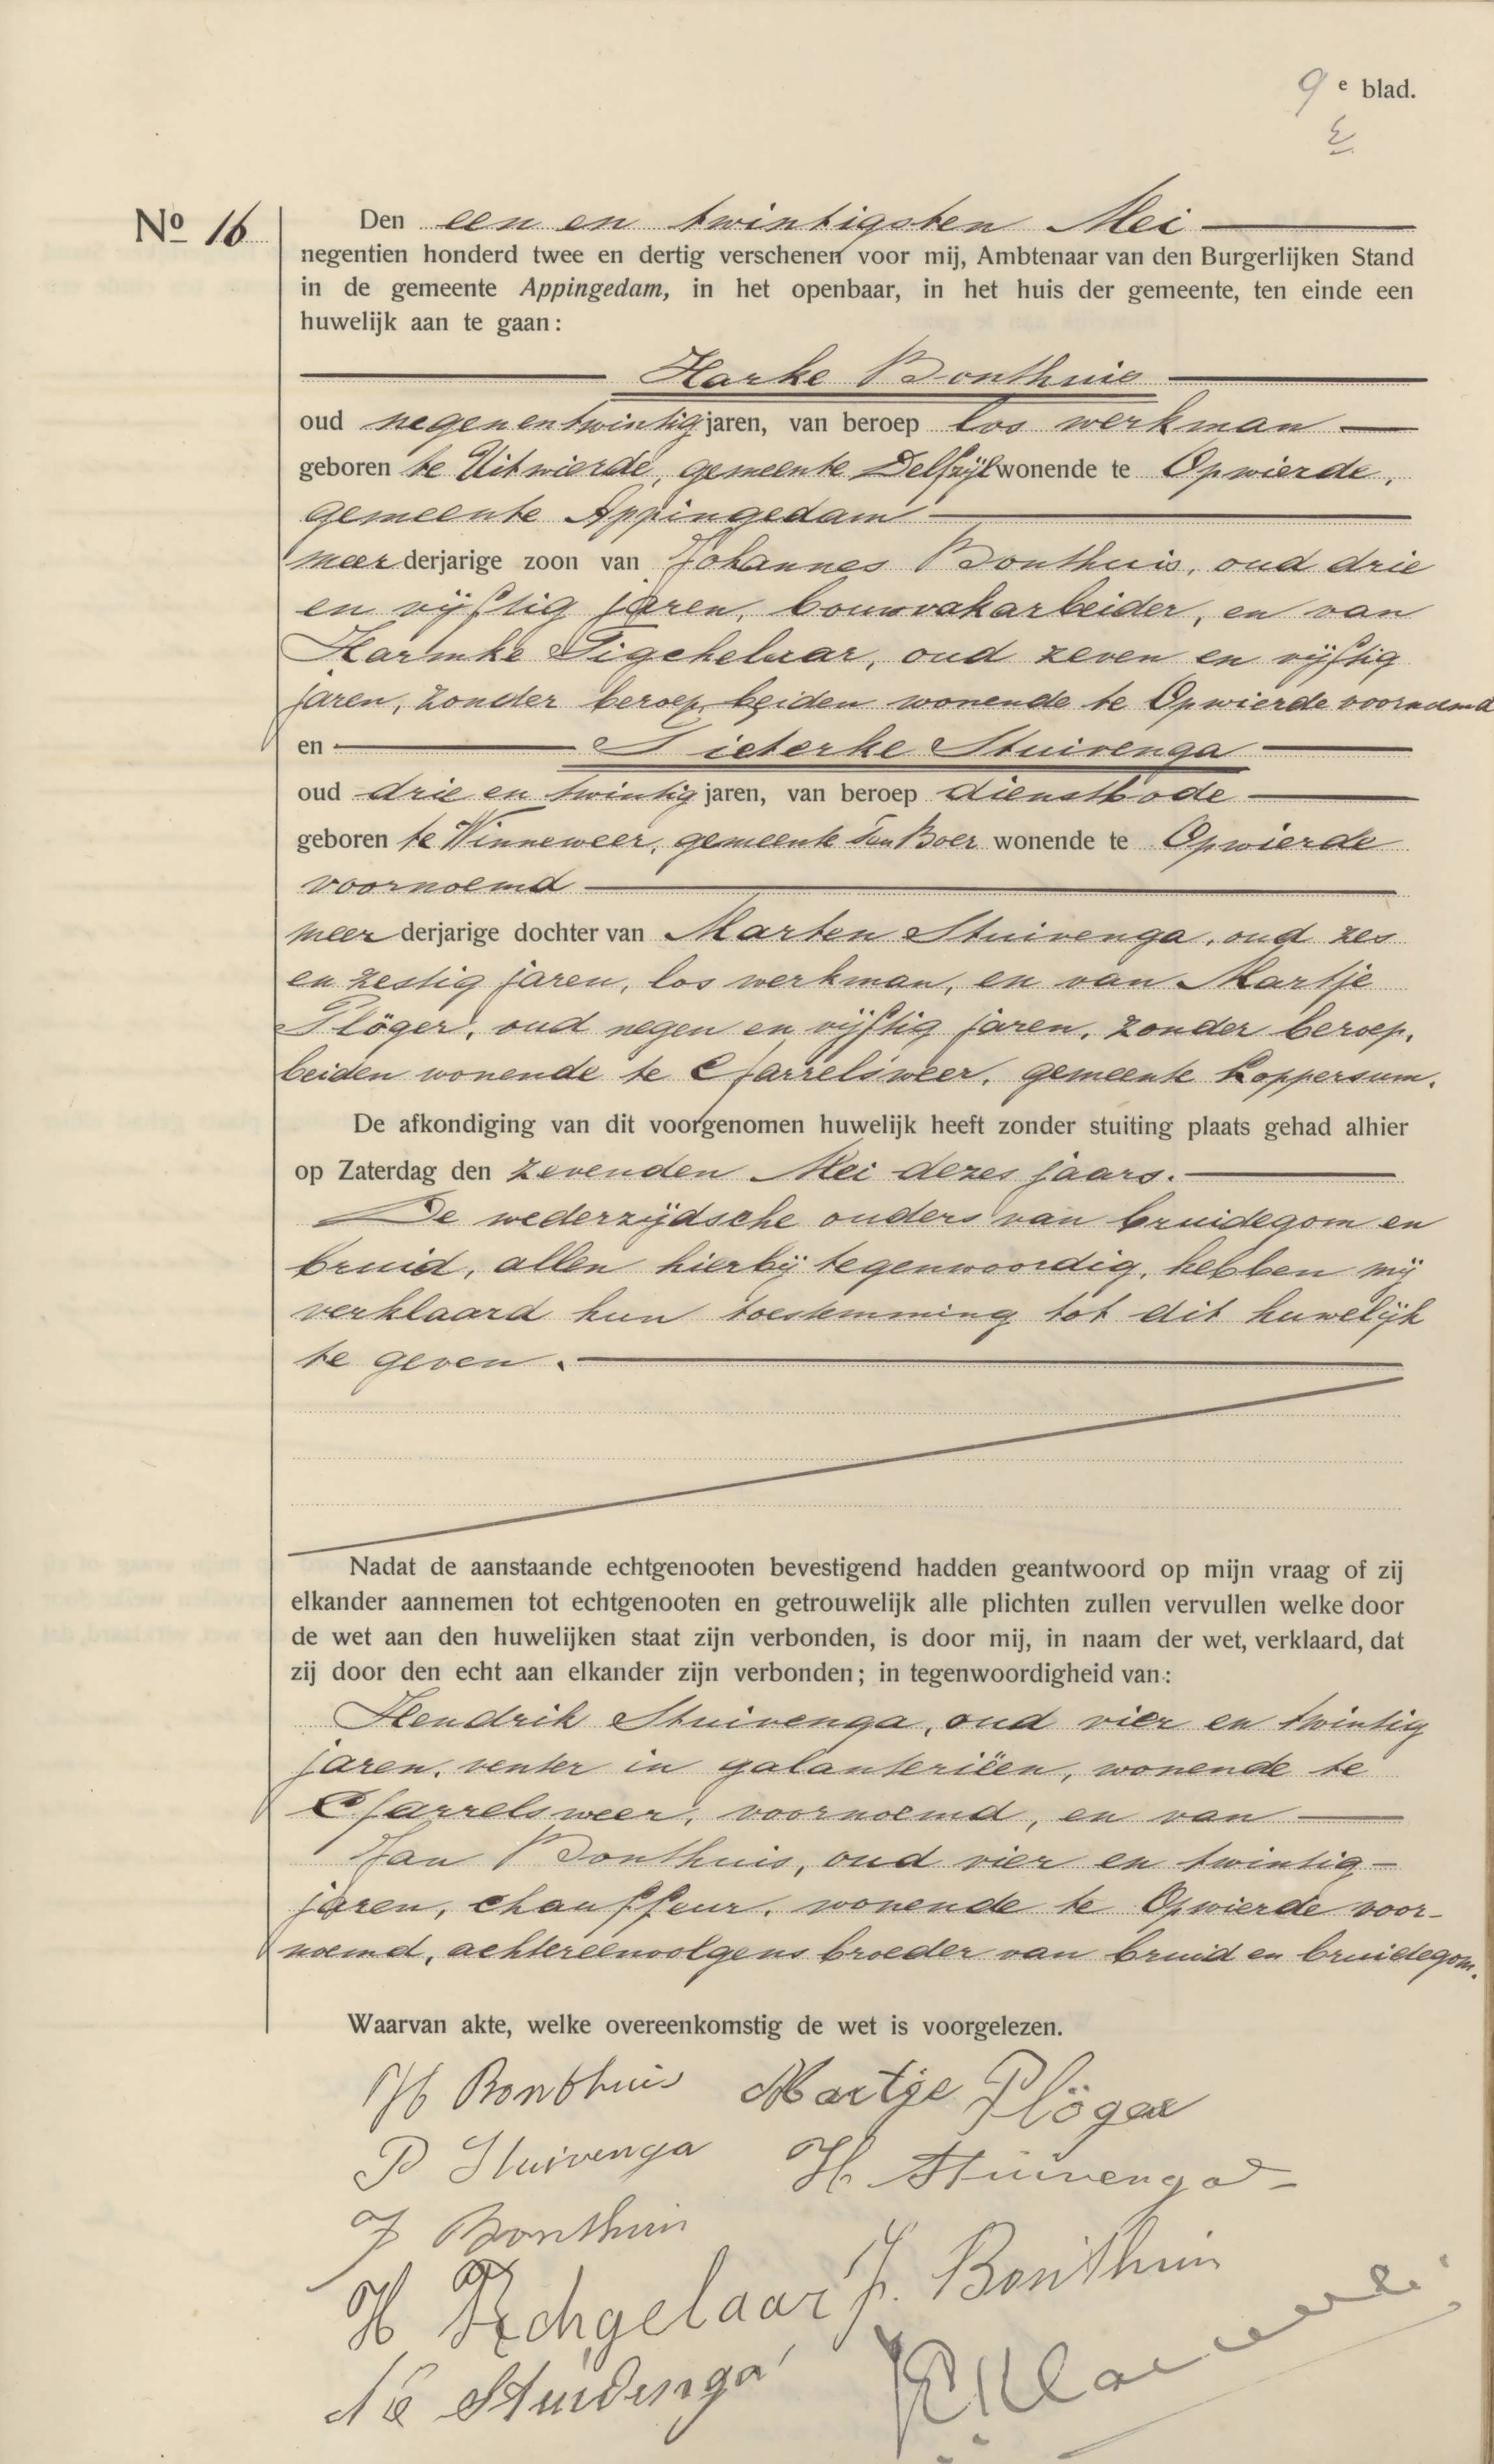 9 e blad.
No 16
Den een en twintigsten Mei
negentien honderd twee en dertig verschenen voor mij, Ambtenaar van den Burgerlijken Stand
in de gemeente Appingedam, in het openbaar, in het huis der gemeente, ten einde een
huwelijk aan te gaan:
Harke Bonthuis
oud negenentwintig jaren, van beroep los werkman
geboren te Uitwierde, gemeente Delfzijl wonende te Opwierde,
gemeente Appingedam
meerderjarige zoon van Johannes Bonthuis, oud drie
en vijftig jaren, bouwvakarbeider, en van
Harmke Tigchelaar, oud zeven en vijftig
jaren, zonder beroep, beiden wonende te Opwierde voornoemd
en Pieterke Stuivenga
oud drie en twintig jaren, van beroep dienstbode
geboren te Winneweer, gemeente Ten Boer wonende te Opwierde
voornoemd
meerderjarige dochter van Marten Stuivenga, oud zes
en zestig jaren, los werkman, en van Martje
Plöger, oud negen en vijftig jaren, zonder beroep,
beiden wonende te Garrelsweer, gemeente Loppersum.
De afkondiging van dit voorgenomen huwelijk heeft zonder stuiting plaats gehad alhier
op Zaterdag den zevenden Mei dezes jaars.
De wederzijdsche ouders van bruidegom en
bruid, allen hierbij tegenwoordig, hebben mij
verklaard hun toestemming tot dit huwelijk
te geven.
Nadat de aanstaande echtgenooten bevestigend hadden geantwoord op mijn vraag of zij
elkander aannemen tot echtgenooten en getrouwelijk alle plichten zullen vervullen welke door
de wet aan den huwelijken staat zijn verbonden, is door mij, in naam der wet, verklaard, dat
zij door den echt aan elkander zijn verbonden; in tegenwoordigheid van:
Hendrik Stuivenga, oud vier en twintig
jaren, venter in galanteriëen, wonende te
Garrelsweer, voornoemd, en van
Jan Bonthuis, oud vier en twintig
jaren, chauffeur, wonende te Opwierde voor-
noemd, achtereenvolgens broeder van bruid en bruidegom.
Waarvan akte, welke overeenkomstig de wet is voorgelezen.
H Bonthuis Martje Plöger
P Stuivenga H Stuivenga
J Bonthuis
H Tichgelaar J. Bonthuis
M Stuivenga